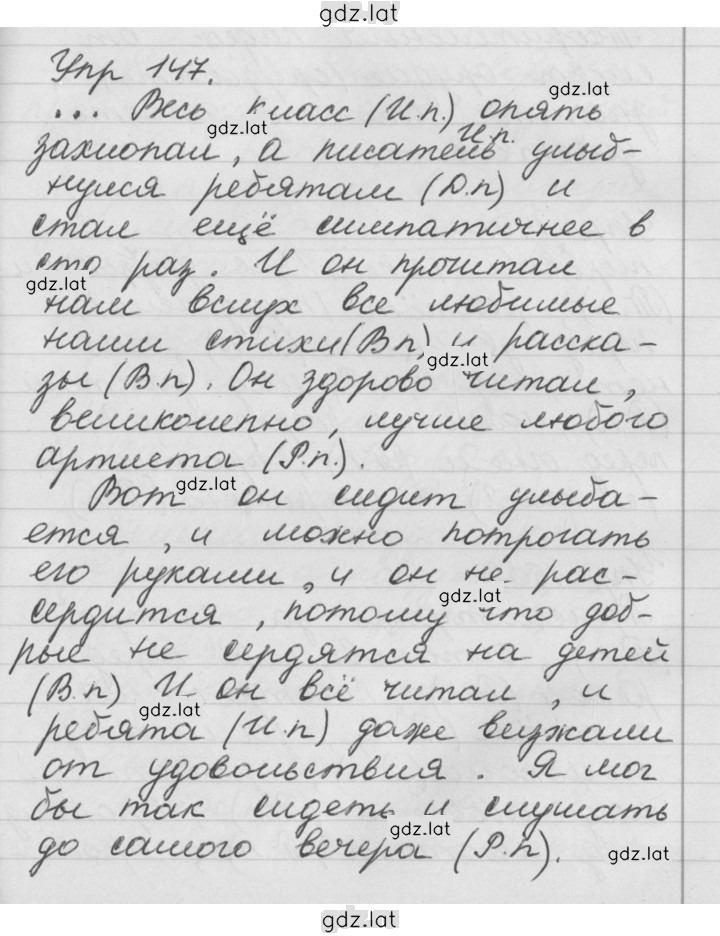 gdz.lat
Упр 147.
... Весь класс (И.п.) опять
gdz.lat
захлопал, а писатель И.п. улыб-
нулся ребятам (Д.п) и
стал ещё симпатичнее в
сто раз. И он прочитал
gdz.lat
нам вслух все любимые
наши стихи (В п) и расска-
gdz.lat
зы (В.п). Он здорово читал,
великолепно, лучше любого
артиста (Р.п.).
gdz.lat
Вот он сидит улыба-
ется, и можно потрогать
его руками, и он не рас-
gdz.lat
сердится, потому что доб-
рые не сердятся на детей
(В.п) И он всё читал, и
gdz.lat
ребята (И.п) даже визжали
от удовольствия. Я мог
бы так сидеть и слушать
gdz.lat
до самого вечера (Р.п).
gdz.lat
gdz.lat